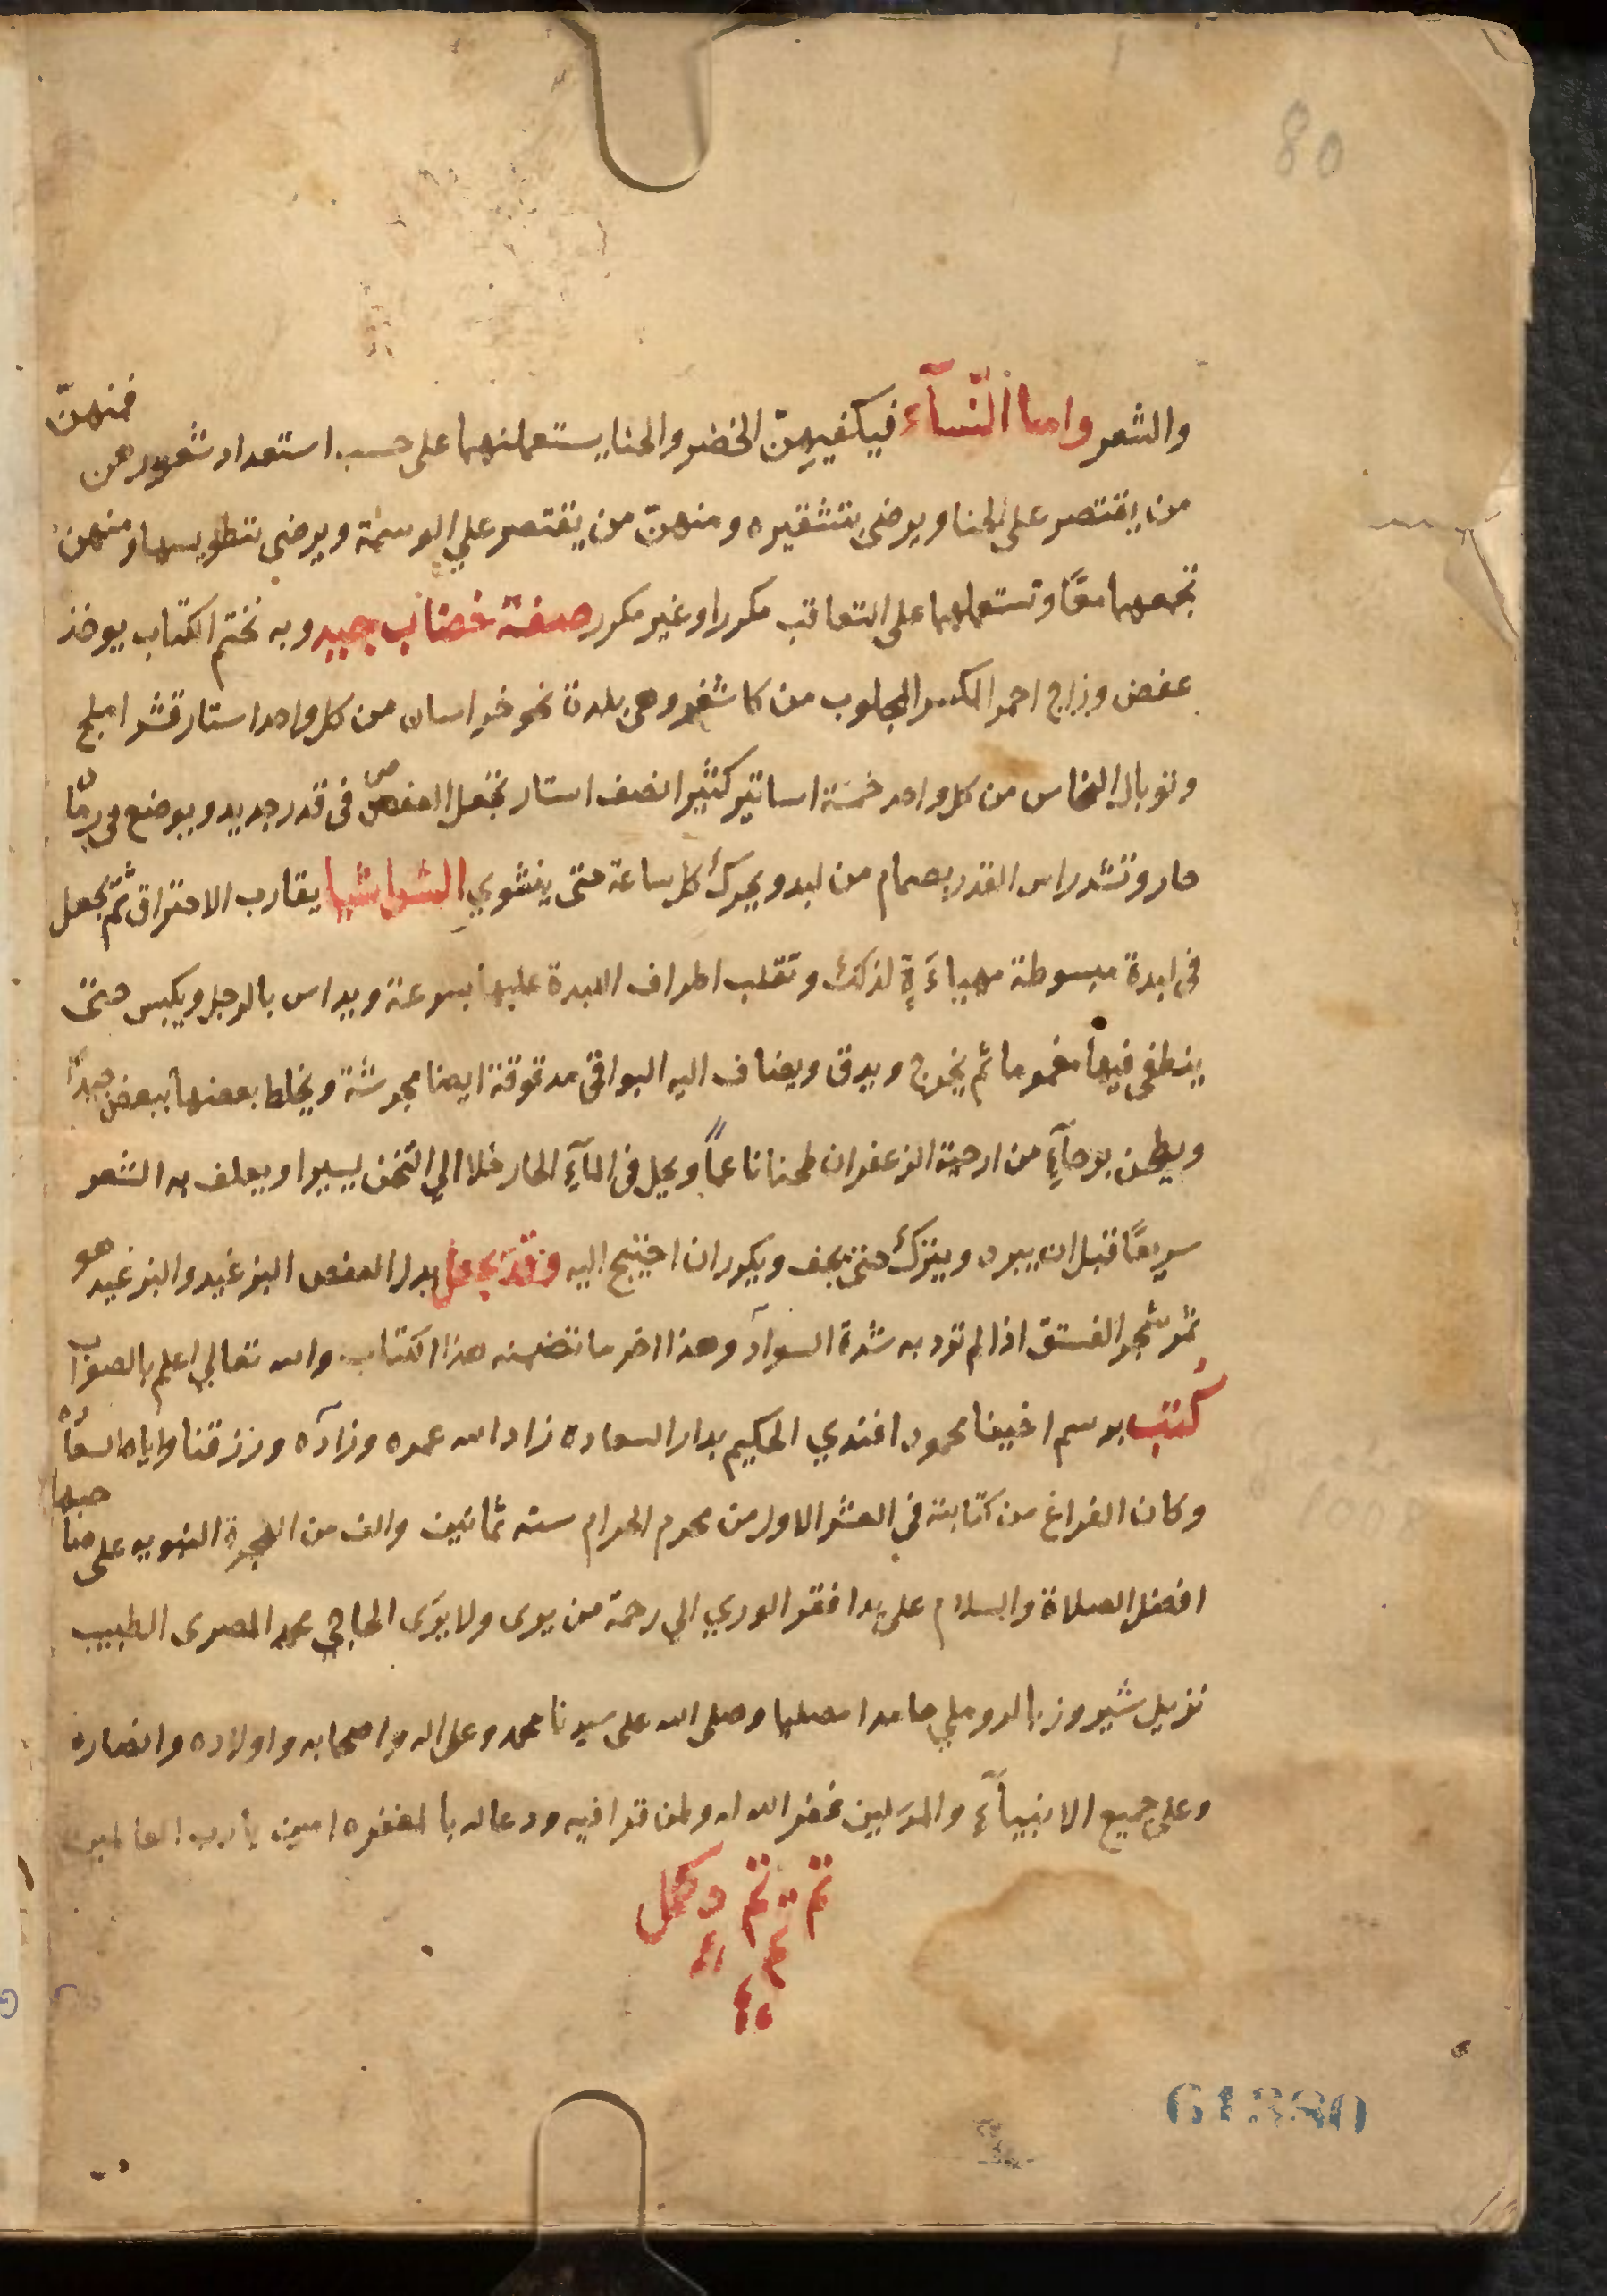 80
والشعر واما النّسآء فيكفيهنّ الخضر والحنا يستعملنهما على حسب استعداد شعورهن فمنهنّ
من يقتصر على الحنا ويرضى بتشقيره ومنهنّ من يقتصر علي الوسمة ويرضى بتطويسها ومنهن
تجمعهما معًا وتستعملهما على التعاقب مكررا وغير مكرر صفة خضاب جيد وبه نختم الكتاب يوخذ
عفص وزاج احمر المجلوب من كاشغر وهى بلدة نحو خراسان من كل واحد استار قشر املج
وتوبال النحاس من كل واحد خمسة اساتير كثيرا نصف استار تجعل العفص فى قدر جديد ويوضع فى رمّاد
حار وتشد راس القدر بصمام من لبد ويحرك كل ساعة حتى ينشوي يقارب الاحتراق ثمّ يجعل
فى لبدة مبسوطة مهياءَة لذلك وتقلب اطراف اللبدة عليها بسرعة ويداس بالرجل ويكبس حتى
ينطفى فيها مغموما ثم يخرج ويدق ويضاف اليه البواقى مدقوقة ايضا مجرشة ويخلط بعضها ببعض جيدًا
ويطحن برحآءٍ من ارحية الزعفران طحنا ناعماً ويحل فى المآءِ الحار خلا الي الثخن يسيرا ويعلف به الشعر
سريعًا قبل ان يبرد ويترك حتى يجف ويكرر ان احتيج اليه وقد يجعل بدل العفص البزغيد والبزغيد هو
ثمر شجر الفستق اذا لم ترد به شدة السوآد وهذا اخر ما تضمنه هذا الكتاب والله تعالي اعلم بالصوآب
كُتب برسم اخينا محمود افندي الحكيم بدار السعاده زاد الله عمره وزآده ورزقنا واياه السعآده
وكان الفراغ من كتابته في العشر الاول من محرم الحرام سنه ثمانين والف من الهجرة النبويه على صاحبها
افضل الصلاة والسلام على يد افقر الوري الي رحمة من يرى ولا يرَى الحاجي محمد المصرى الطبيب
نزيل شيروز بالروملي حامدا مصليا وصلى الله على سيدنا محمد وعلى اله واصحابه واولاده وانصاره
وعلى جميع الانبيآء والمرسلين غفر الله له ولمن قرا فيه ودعا له بالمغفره امين يارب العالمين
تم تم وكمل
تم